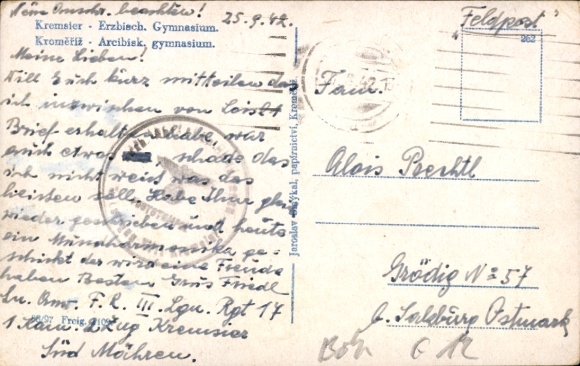 Neue Anschr. beachten! 25.9.42.
Kremsier - Erzbisch. Gymnasium.
Kroměříž - Arcibisk. gymnasium.
Meine Lieben!
Will Euch kurz mitteilen das
ich inzwischen von Loisl
Brief erhalten habe, war
auch etwas schade das
ich nicht weis was das
heisten soll. Habe Ihm
wieder geschrieben und heute
ein Mundharmonika ge-
schickt der wird eine Freude
haben Besten Grüs Friedl
F. R. III. Lgn. Rgt 17
Freig.
1 Kom. Zug Kremsier
Süd Mähren.
Jaroslav papírnictví, Kroměříž
"Feldpost"
262
Fam.
Alois Bechtl
Grödig No 57
b. Salzburg Ostmark